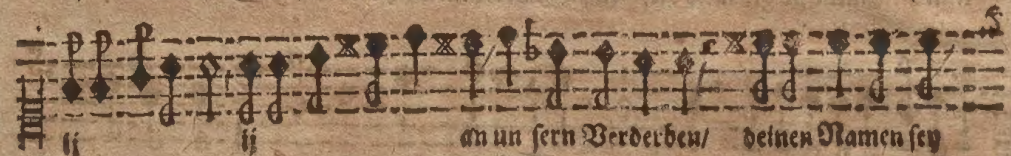 ij ij an un sern Verderben/ deinen Namen sey